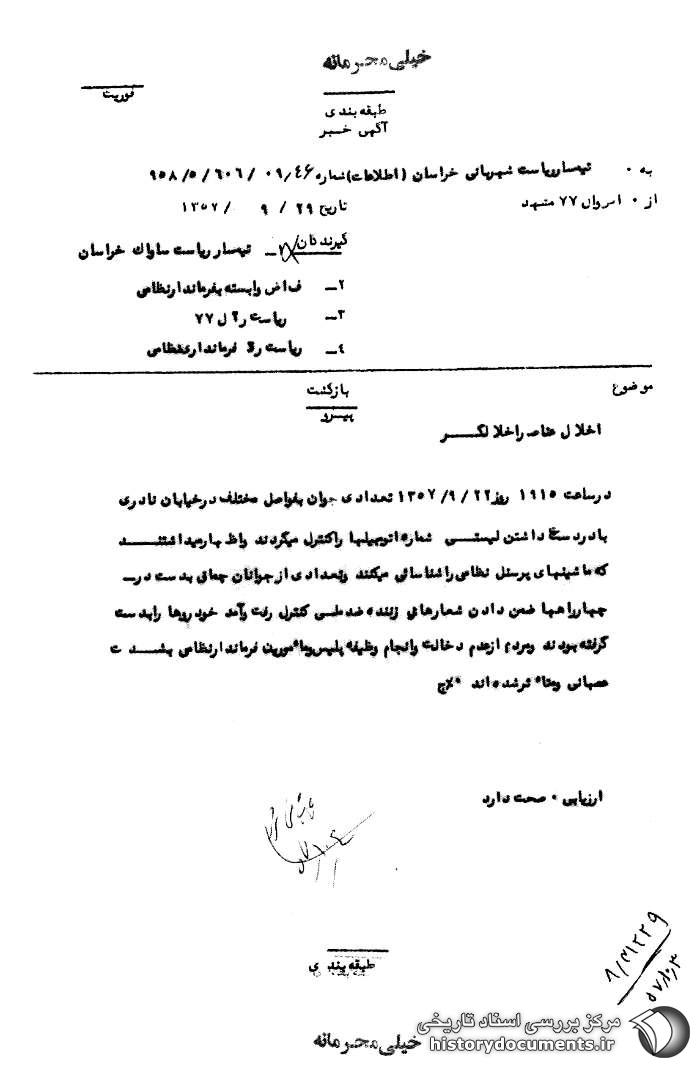 خیلی محرمانه
فوریت
طبقه بندی
آگهی خبر
به ۰ تیمسار ریاست شهربانی خراسان (اطلاعات) شماره ۰۹٫۴۶ / ۶۰۶ / ۵ / ۹۵۸
از ۰ امروال ۷۷ مشهد تاریخ ۲۹ / ۹ / ۱۳۵۷
گیرندگان ۱ـ تیمسار ریاست ساواك خراسان
۲ـ ف اض وابسته بفرماندارنظامی
۳ـ ریاست ر۲ ل ۷۷
۴ـ ریاست ر۳ فرمانداری نظامی
موضوع بازگشت
پیرو
اخلال عناصر اخلالگر
در ساعت ۱۹۱۵ روز ۲۲ / ۹ / ۱۳۵۷ تعدادی جوان بفواصل مختلف در خیابان نادری
بادر دست داشتن لیستی شماره اتومبیلها راکنترل میکردند واظهار میداشتند
که ماشینهای پرسنل نظامی را شناسائی میکنند وتعدادی از جوانان چماق بدست درـ
چهارراهها ضمن دادن شعارهای زننده ضد ملی کنترل رفت وآمد خودروها رابدست
گرفته بودند ومردم ازعدم دخالت وانجام وظیفه پلیس ومأمورین فرماندارنظامی بشدت
عصبانی ومتأثرشده اند
ارزیابی ۰ صحت دارد
طبقه بندی
خیلی محرمانه
۸/۳۱۲۲۹
۵۷/۱۰/۳
مرکز بررسی اسناد تاریخی
historydocuments.ir